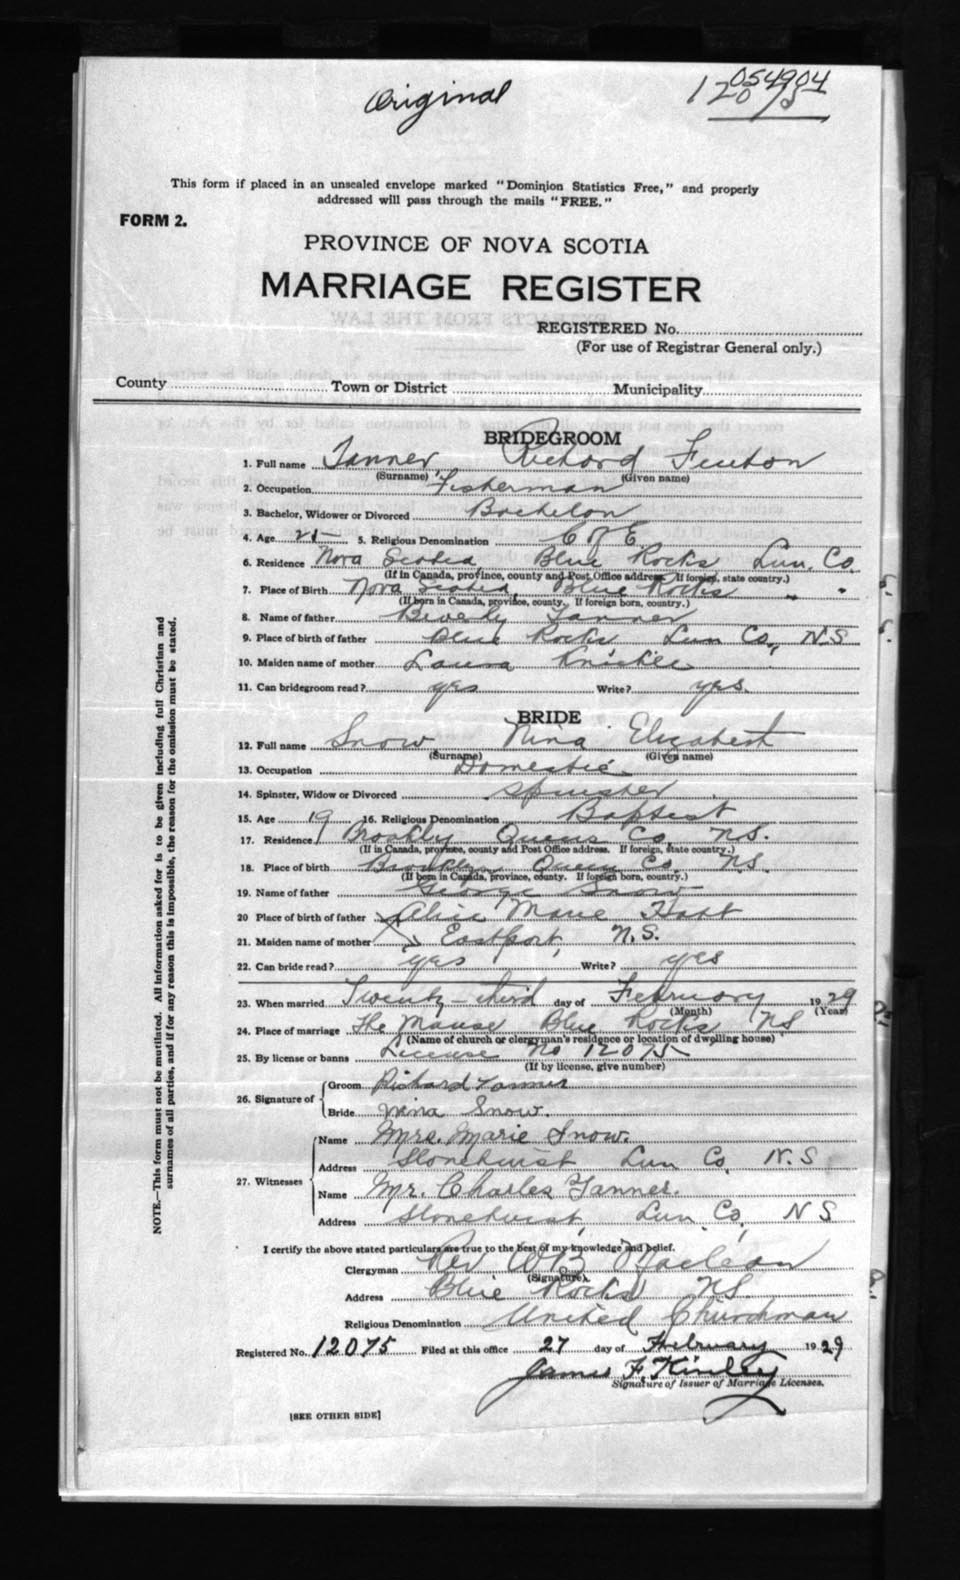 Original
054904
12075
This form if placed in an unsealed envelope marked "Dominion Statistics Free," and properly
addressed will pass through the mails "FREE."
FORM 2.
PROVINCE OF NOVA SCOTIA
MARRIAGE REGISTER
REGISTERED No.
(For use of Registrar General only.)
County Town or District Municipality
BRIDEGROOM
1. Full name Tanner Richard Fenton
(Surname) (Given name)
2. Occupation Fisherman
3. Bachelor, Widower or Divorced Bachelor
4. Age 21 5. Religious Denomination C of E
6. Residence Nova Scotia, Blue Rocks Lun. Co.
(If in Canada, province, county and Post Office address. If foreign, state country.)
7. Place of Birth Nova Scotia, Blue Rocks " "
(If born in Canada, province, county. If foreign born, country.)
8. Name of father Beverly Tanner
9. Place of birth of father Blue Rocks Lun Co., N.S
10. Maiden name of mother Laura Knickle
11. Can bridegroom read? yes Write? yes.
BRIDE
12. Full name Snow Nina Elizabeth
(Surname) (Given name)
13. Occupation Domestic
14. Spinster, Widow or Divorced Spinster
15. Age 19 16. Religious Denomination Baptist
17. Residence Brookly Queens Co, N.S.
(If in Canada, province, county and Post Office address. If foreign, state country.)
18. Place of birth Brooklyn Queen Co. N.S.
(If born in Canada, province, county. If foreign born, country.)
19. Name of father George Snow
20 Place of birth of father Alice Marie Hatt
21. Maiden name of mother Eastport, N.S.
22. Can bride read? yes Write? yes
23. When married Twenty-third day of February 1929
(Month) (Year)
24. Place of marriage The Manse Blue Rocks NS
(Name of church or clergyman's residence or location of dwelling house)
25. By license or banns License No 12075
(If by license, give number)
26. Signature of Groom Richard Tanner
Bride Nina Snow.
27. Witnesses Name Mrs. Marie Snow.
Address Stonehurst Lun Co. N.S
Name Mr. Charles Tanner.
Address Stonehurst, Lun. Co, N S
I certify the above stated particulars are true to the best of my knowledge and belief.
Clergyman Rev W B Maclean
(Signature)
Address Blue Rocks NS.
Religious Denomination United Churchman
Registered No. 12075 Filed at this office 27 day of February 1929
James F. Kinley
Signature of Issuer of Marriage Licenses.
[SEE OTHER SIDE]
NOTE.—This form must not be mutilated. All information asked for is to be given including full Christian and
surnames of all parties, and if for any reason this is impossible, the reason for the omission must be stated.